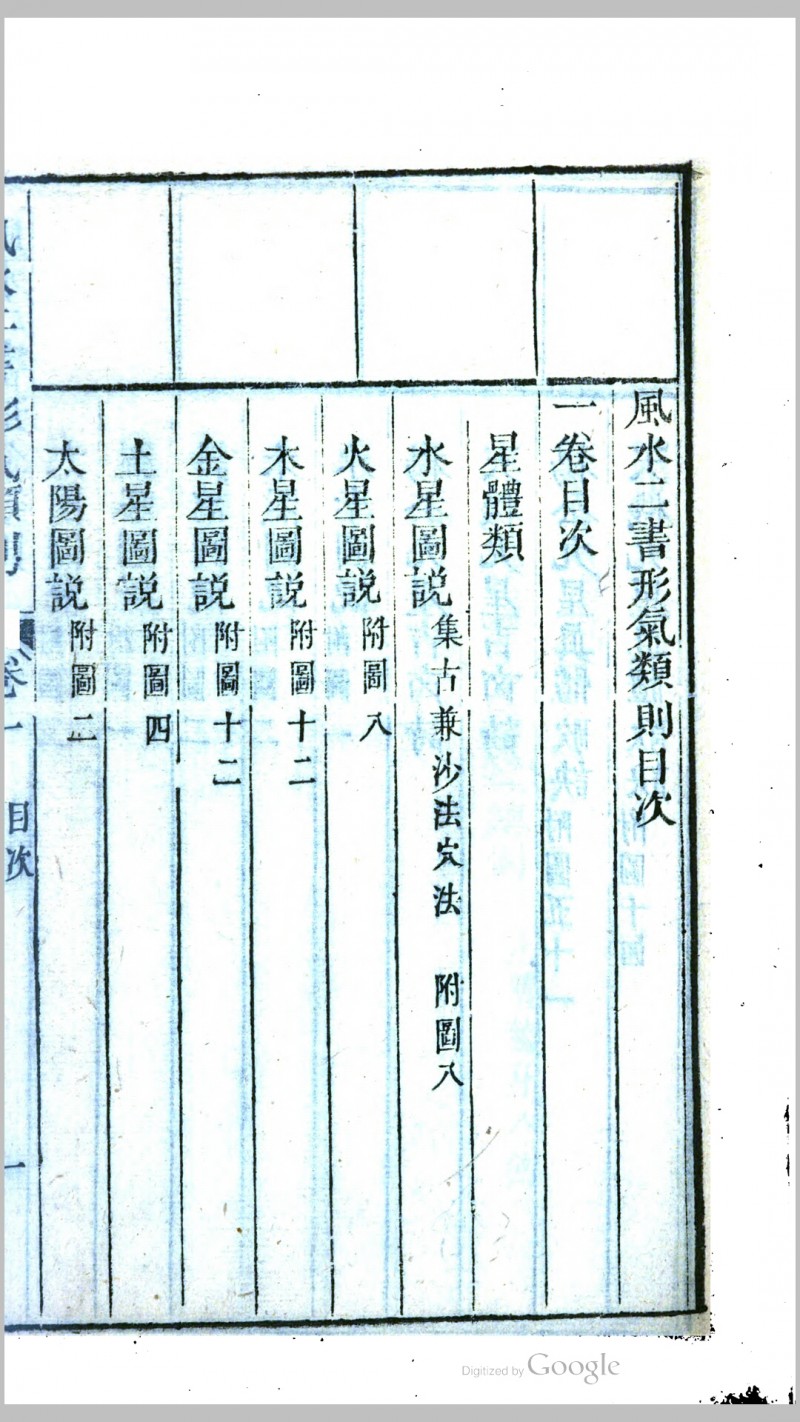 風水二書形氣類則目次
一卷目次
星體類
水星圖說 集古兼沙法穴法 附圖八
火星圖說 附圖八
木星圖說 附圖十二
金星圖說 附圖十二
土星圖說 附圖四
太陽圖說 附圖二
卷一 目次 一
Digitized by Google